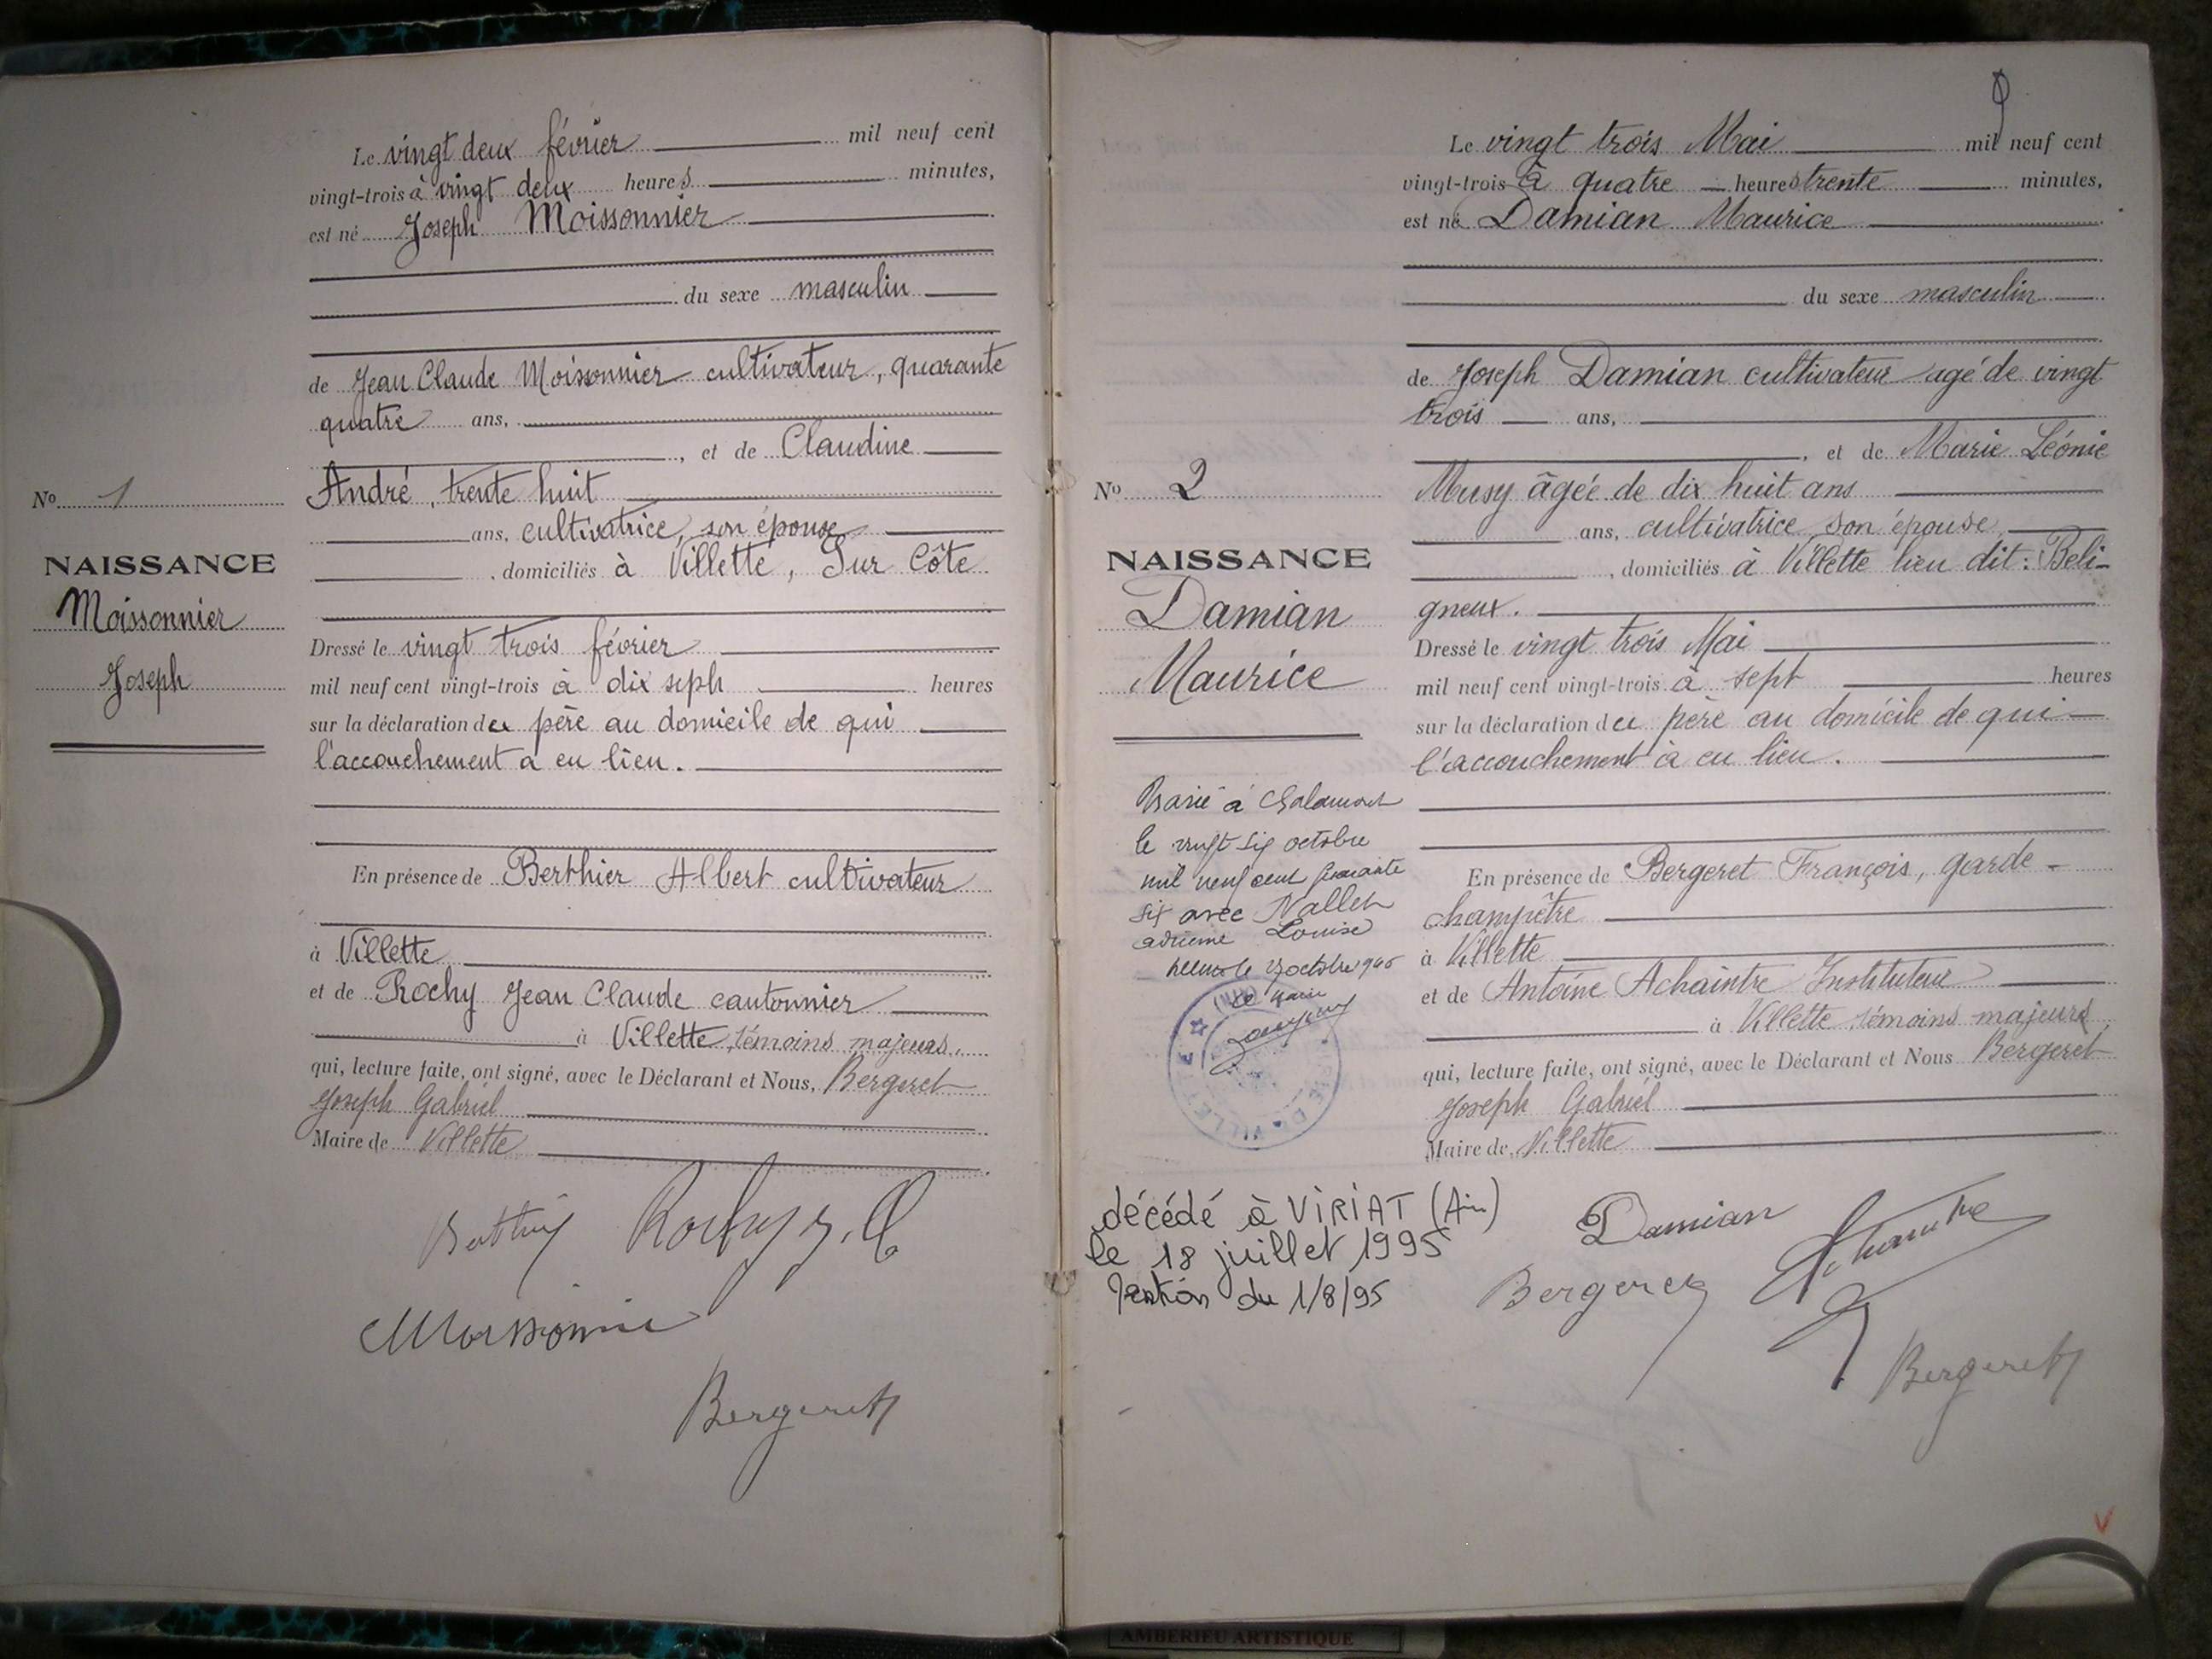 Le vingt deux février mil neuf cent
vingt-trois à vingt deux heures minutes,
est né Joseph Moissonnier
du sexe masculin
de Jean Claude Moissonnier cultivateur, quarante
quatre ans,
, et de Claudine
André, trente huit
ans, cultivatrice, son épouse
, domiciliés à Villette, Sur Côte
Dressé le vingt trois février
mil neuf cent vingt-trois à dix seph heures
sur la déclaration du père au domicile de qui
l'accouchement a eu lieu.
En présence de Berthier Albert cultivateur
à Villette
et de Rochy Jean Claude cantonnier
à Villette, témoins majeurs,
qui, lecture faite, ont signé, avec le Déclarant et Nous, Bergeret
Joseph Gabriel
Maire de Villette
No 1
NAISSANCE
Moissonnier
Joseph
Rochy J. C
Bergeret
Le vingt trois Mai mil neuf cent
vingt-trois à quatre heures trente minutes,
est né Damian Maurice
du sexe masculin
de Joseph Damian cultivateur agé de vingt
trois ans,
, et de Marie Léonie
Musy âgée de dix huit ans
ans, cultivatrice son épouse
, domiciliés à Villette lieu dit: Beli-
gneux.
Dressé le vingt trois Mai
mil neuf cent vingt-trois à sept heures
sur la déclaration du père au domicile de qui
l'accouchement à eu lieu.
En présence de Bergeret François, garde-
champêtre
à Villette
et de Antoine Achaintre Instituteur
à Villette témoins majeurs
qui, lecture faite, ont signé, avec le Déclarant et Nous Bergeret
Joseph Gabriel
Maire de Villette
No 2
NAISSANCE
Damian
Maurice
Marié à Chalamont
le vingt six octobre
mil neuf cent quarante
six avec Nallet
Louise
le octobre 1946
Le Maire
décédé à VIRIAT (Ain)
le 18 juillet 1995
du 1/8/95
Damian
Achaintre
Bergeret
Bergeret
AMBERIEU ARTISTIQUE